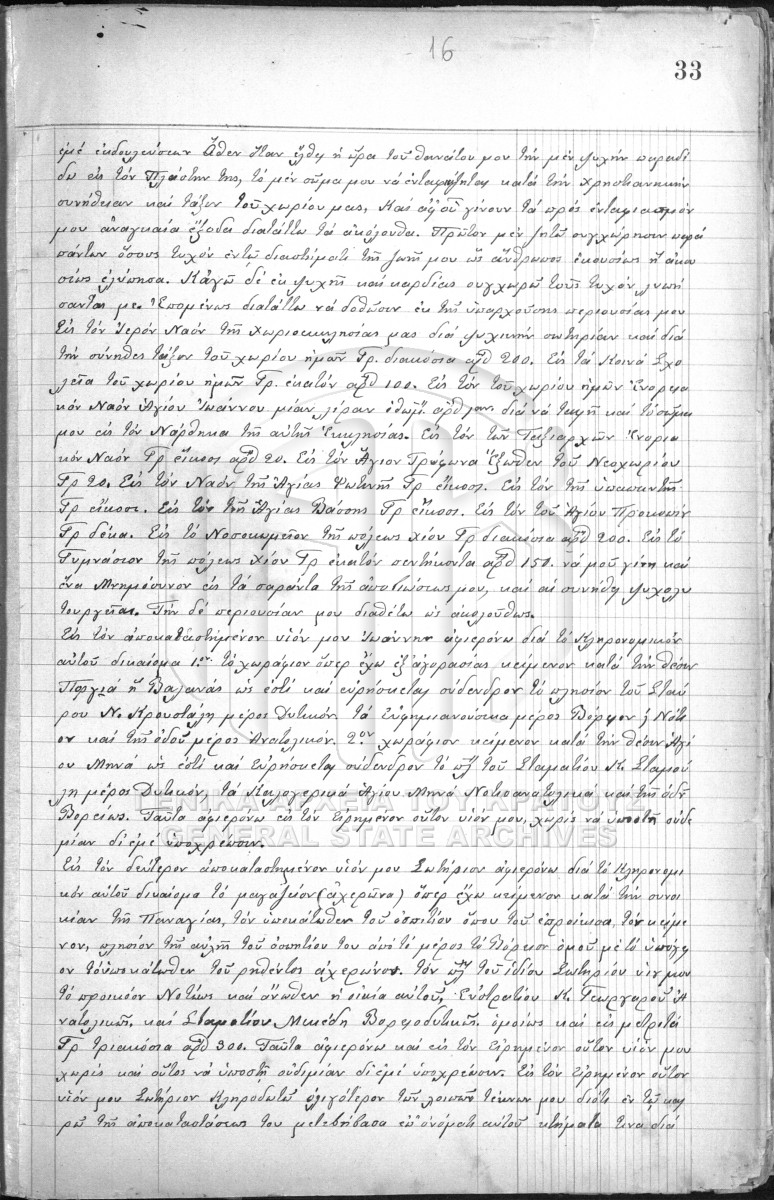 16
33
ἐμὲ ἐκδουλεύσεων Ὅθεν ὅταν ἔλθῃ ἡ ὥρα τοῦ θανάτου μου τὴν μὲν ψυχήν παραδί
δω εἰς τὸν Πλάστην της, τὸ μὲν σῶμα μου νὰ ἐνταφιασθῇ κατὰ τὴν Χρηστιανικήν
συνήθειαν καὶ τάξιν τοῦ χωρίου μας, Καὶ ἀφοῦ γίνουν τὰ πρὸς ἐνταφιασμόν
μου ἀναγκαῖα ἔξοδα διατάττω τὰ ἀκόλουθα. Πρῶτον μὲν ζητῶ συγχώρησιν παρὰ
πάντων ὅσους τυχὸν ἐν τῷ διαστήματι τῆς ζωῆς μου ὡς ἄνθρωπος ἑκουσίως ἢ ἀκου
σίως ἐλύπησα. Κἀγὼ δὲ ἐκ ψυχῆς καὶ καρδίας συγχωρῶ τοὺς τυχὸν λυπή
σαντας με. Ἑπομένως διατάττω νὰ δοθῶσιν ἐκ τῆς ὑπαρχούσης περιουσίας μου
Εἰς τὸν Ἱερὸν Ναὸν τῆς Χωριοεκκλησίας μας διὰ ψυχικὴν σωτηρίαν καὶ διὰ
τὴν συνήθες τάξιν τοῦ χωρίου ἡμῶν Γρ. διακόσια ἀρθ 200. Εἰς τὰ Κοινὰ Σχο
λεῖα τοῦ χωρίου ἡμῶν Γρ. ἑκατὸν ἀρθ 100. Εἰς τὸν τοῦ χωρίου ἡμῶν Ἐνορια
κὸν Ναὸν Ἁγίου Ἰωάννου μίαν λίραν ὀθωμ. ἀρθ διὰ νὰ ταφῇ καὶ τὸ σῶμα
μου εἰς τὸν Νάρθηκα τῆς αὐτῆς Ἐκκλησίας. Εἰς τὸν τῶν Ταξιαρχῶν Ἐνορια
κὸν Ναὸν Γρ εἴκοσι ἀρθ 20. Εἰς τὸν Ἅγιον Τρύφωνα Ἔξωθεν τοῦ Νεοχωρίου
Γρ 20. Εἰς τὸν Ναὸν τῆς Ἁγίας Φωτηνῆς Γρ εἴκοσι. Εἰς τὸν τῆς ὑπαπαντῆς
Γρ εἴκοσι. Εἰς τὸν τῆς Ἁγίας Βάσσης Γρ εἴκοσι. Εἰς τὸν τοῦ Ἁγίου Προκοπίου
Γρ δέκα. Εἰς τὸ Νοσοκωμεῖον τῆς πόλεως Χίου Γρ διακόσια ἀρθ 200. Εἰς τὸ
Γυμνάσιον τῆς πόλεως Χίου Γρ ἑκατὸν πεντήκοντα ἀρθ 150. νὰ μοῦ γίνῃ καὶ
ἕνα Μνημόσυνον εἰς τὰ σαράντα τῆς ἀποβιώσεως μου, καὶ αἱ συνήθη ψυχολυ
τουργεῖαι. Τὴν δὲ περιουσίαν μου διαθέτω ὡς ἀκολούθως.
Εἰς τὸν ἀποκαταστημένον υἱόν μου Ἰωάννην ἀφιερόνω διὰ τὸ Κληρονομικὸν
αὐτοῦ δικαίομα 1ον τὸ χωράφιον ὅπερ ἔχω ἐξ ἀγορασίας κείμενον κατὰ τὴν θέσιν
ἢ Βαλανάς ὡς ἐστὶ καὶ εὑρήσκεται σύδενδρον τὸ πλησίον τοῦ Σταύ
ρου Ν. Κρουστάλη μέρος Δυτικόν. τὰ μέρος Βόρειον Νότι
ον καὶ τῆς ὁδοῦ μέρος Ἀνατολικόν. 2.ον χωράφιον κείμενον κατὰ τὴν θέσιν Ἁγί
ου Μηνᾶ ὡς ἐστὶ καὶ Εὑρήσκεται σύδενδρον τὸ πλ τοῦ Σταματίου Κ. Σταμού
λη μέρος Δυτικόν, τὰ Καλογερικὰ Ἁγίου Μηνᾶ Νοτιοανατολικὰ καὶ τῆς ὁδοῦ
Βορείως. Ταῦτα ἀφιερόνω εἰς τὸν Εἰρημένον οὗτον υἱόν μου, χωρὶς νὰ ὑποστῇ οὐδε
μίαν δι' ἐμὲ ὑποχρέωσιν.
Εἰς τὸν δεύτερον ἀποκαταστημένον υἱόν μου Σωτήριον ἀφιερόνω διὰ τὸ Κληρονομι
κὸν αὐτοῦ δικαίομα τὸ μαγαζίον (ἀχερῶνα) ὅπερ ἔχω κείμενον κατὰ τὴν συνοι
κίαν τῆς Παναγίας, τὸν ὑποκάτωθεν τοῦ ὁσπιτίου ὅπου τοῦ ἐπροίκισα, τὸν κείμε
νον, πλησίον τῆς αὐλῆς τοῦ ὁσπητίου του ἀπὸ τὸ μέρος τὸ Βόρειον ὁμοῦ μὲ τὸ ὑπόγει
ον τὸ ὑποκάτωθεν τοῦ ῥηθέντος ἀχερῶνος. τὸν πλ τοῦ ἰδίου Σωτηρίου υἱοῦ μου
τὸ προικῶον Νοτίως καὶ ἄνωθεν ἡ οἰκία αὐτοῦ, Εὐστρατίου Κ. Γεωργαροῦ Ἀ
νατολικῶς, καὶ Σταματίου Μικέδη Βορειοδυτικῶς. ὁμοίως καὶ εἰς μετρητὰ
Γρ τριακόσια ἀρθ 300. Ταῦτα ἀφιερόνω καὶ εἰς τὸν Εἰρημένον οὗτον υἱόν μου
χωρὶς καὶ οὗτος νὰ ὑποστῇ οὐδεμίαν δι' ἐμὲ ὑποχρέωσιν. Εἰς τὸν Εἰρημένον οὗτον
υἱόν μου Σωτήριον Κληροδωτῶ ὀλιγότερον τῶν λοιπῶν τέκνων μου διότι ἐν τῷ και
ρῷ τῆς ἀποκαταστάσεως του μετεβίβασα ἐπ' ὀνόματι αὐτοῦ κτήματα τινα διὰ
ΓΕΝΙΚΑ ΑΡΧΕΙΑ ΤΟΥ ΚΡΑΤΟΥΣ
GENERAL STATE ARCHIVES